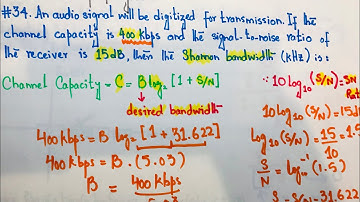 #34. An audio signal will be digitized for transmission. If the
channel capacity is 400 kbps and the signal-to-noise ratio of
the receiver is 15dB, then the Shannon bandwidth (kHz) is:
Channel Capacity = C = B log₂ [1 + S/N]
desired bandwidth
400 Kbps = B log₂ [1 + 31.622]
400 Kbps = B · (5.03)
B = 400 Kbps
∵ 10 log₁₀ (S/N) = SN
10 log₁₀ (S/N) = 15d
log₁₀ (S/N) = 15
10
S/N = log₁₀⁻¹ (1.5)